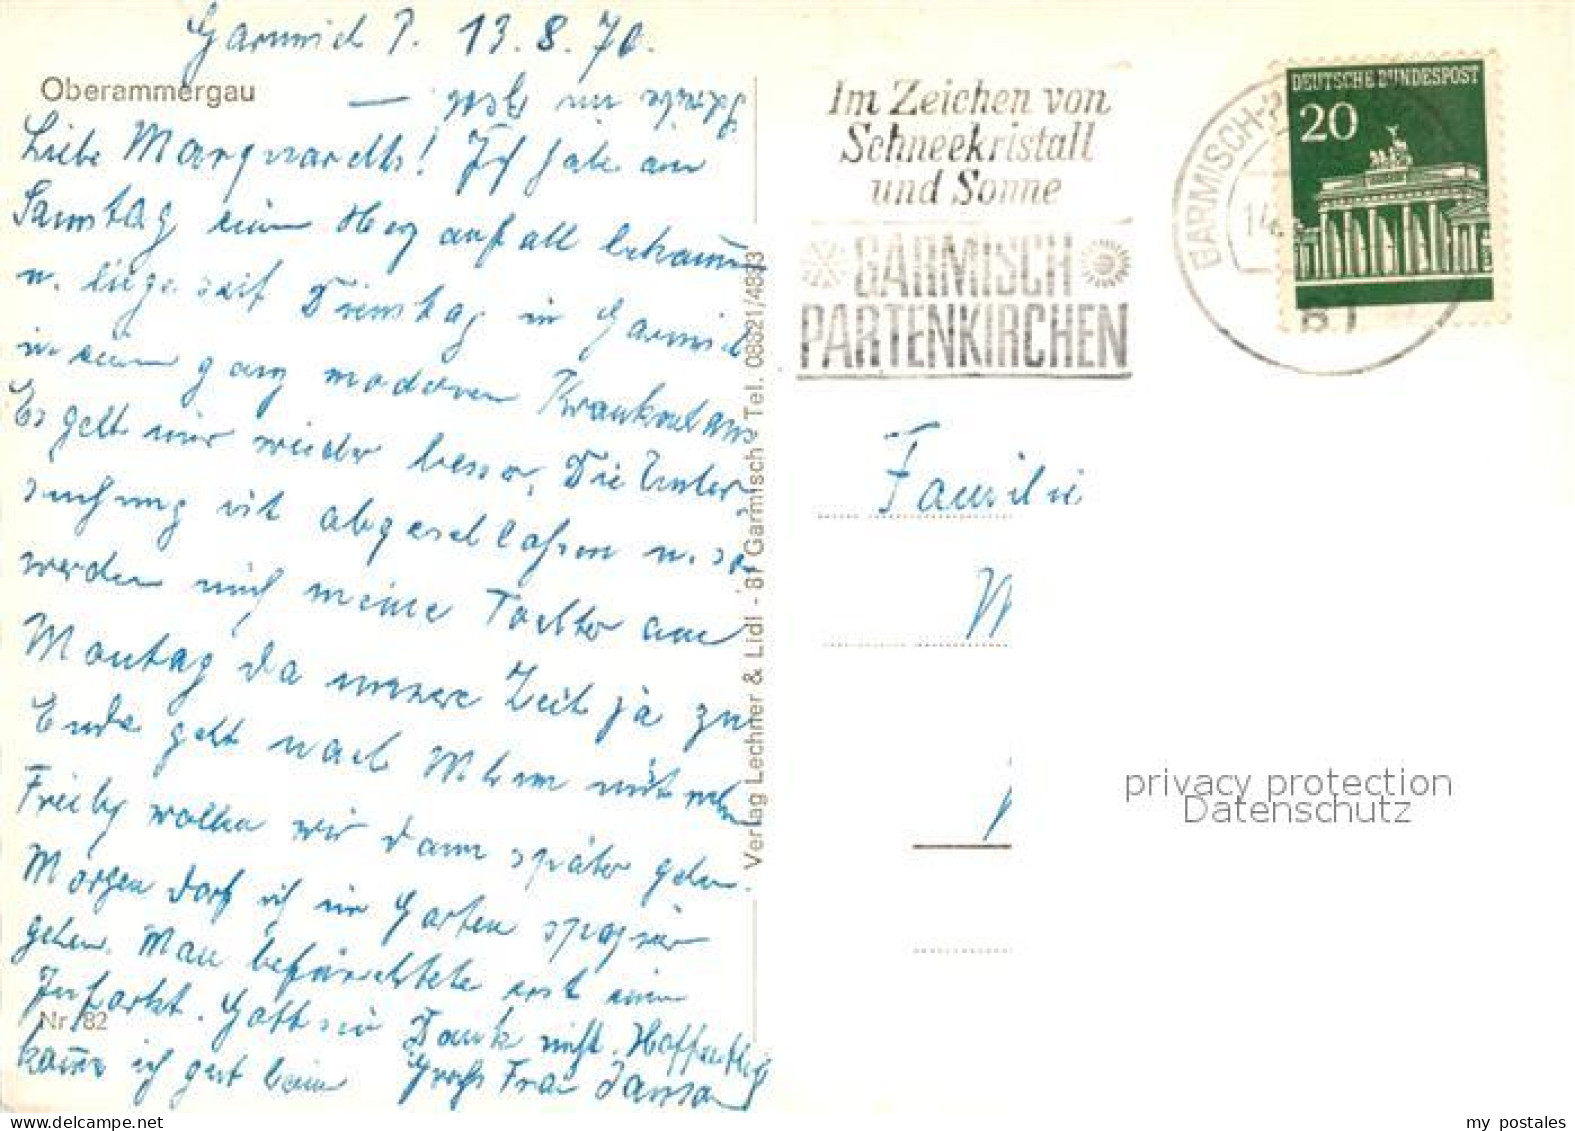 Garmisch P. 13. 8. 70.
Oberammergau
Liebe Marquardts! Ich habe am
Samstag einen Herzanfall bekommen
u. liege seit Dienstag in Garmisch
in einem ganz modernen Krankenhaus
Es geht mir wieder besser. Die Unter
suchung ist abgeschlossen u. so
werden mich meine Tochter am
Montag da unsere Zeit ja zu
Ende geht nach Ulm mitnehmen
Freibg wollen wir dann später gehen.
Morgen darf ich im Garten spazieren
gehen. Man befürchtete erst einen
Infarkt. Gott sei Dank nicht. Hoffentlich
komme ich gut heim Gruß Frau
Nr. 82
Verlag Lechner & Lidl - 81 Garmisch - Tel. 08821/4883
Im Zeichen von
Schneekristall
und Sonne
GARMISCH
PARTENKIRCHEN
GARMISCH-P
14.
81
DEUTSCHE BUNDESPOST
20
Familie
M
privacy protection
Datenschutz
my postales